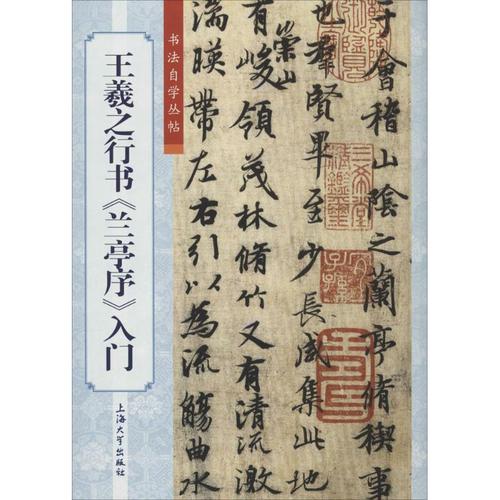 书法自学丛帖
王羲之行书《兰亭序》入门
上海大学出版社
于會稽山陰之蘭亭脩稧事
也群賢畢至少長咸集此地
崇山
有峻領茂林脩竹又有清流激
湍暎帶左右引以為流觴曲水
三希堂
精鑑璽
宜
子孫